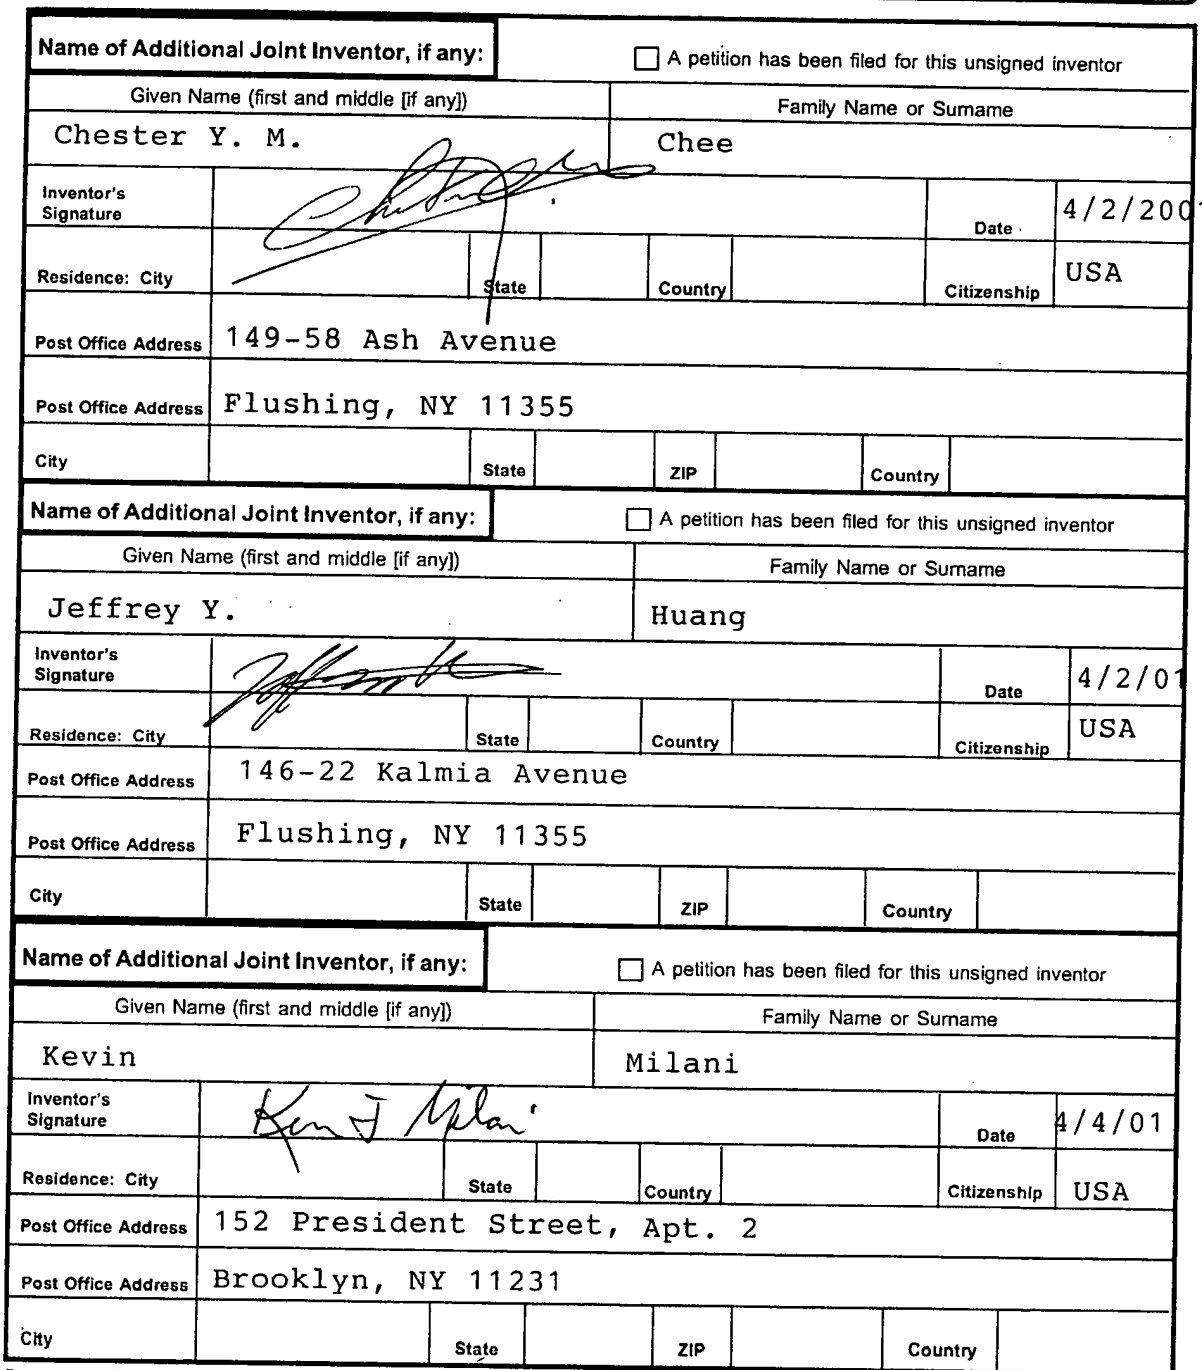 Name of Additional Joint Inventor, if any:
A petition has been filed for this unsigned inventor
Given Name (first and middle [if any])
Family Name or Surname
Chester Y. M.
Chee
Inventor's
Signature
Date
4/2/2001
Residence: City
State
Country
Citizenship
USA
Post Office Address
149-58 Ash Avenue
Post Office Address
Flushing, NY 11355
City
State
ZIP
Country
Name of Additional Joint Inventor, if any:
A petition has been filed for this unsigned inventor
Given Name (first and middle [if any])
Family Name or Surname
Jeffrey Y.
Huang
Inventor's
Signature
Date
4/2/01
Residence: City
State
Country
Citizenship
USA
Post Office Address
146-22 Kalmia Avenue
Post Office Address
Flushing, NY 11355
City
State
ZIP
Country
Name of Additional Joint Inventor, if any:
A petition has been filed for this unsigned inventor
Given Name (first and middle [if any])
Family Name or Surname
Kevin
Milani
Inventor's
Signature
Date
4/4/01
Residence: City
State
Country
Citizenship
USA
Post Office Address
152 President Street, Apt. 2
Post Office Address
Brooklyn, NY 11231
City
State
ZIP
Country